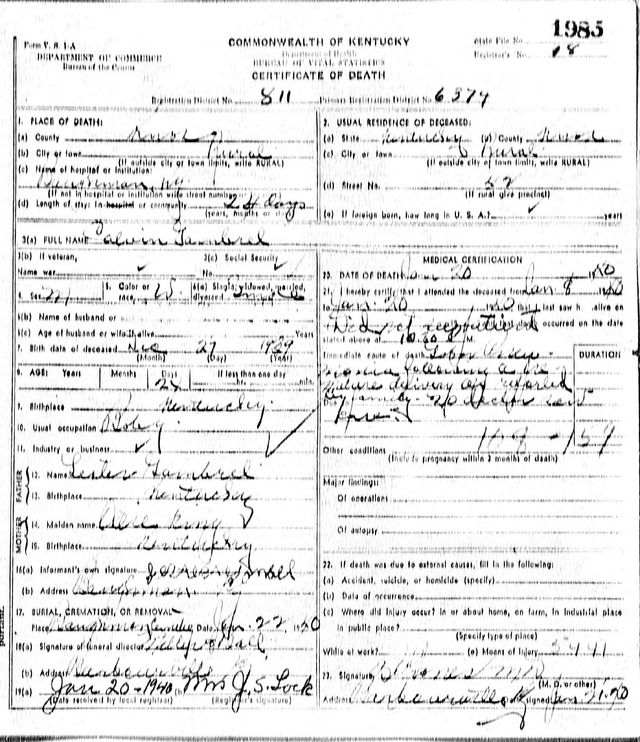 1985
Form V. S. 1-A
DEPARTMENT OF COMMERCE
Bureau of the Census
COMMONWEALTH OF KENTUCKY
Department of Health
BUREAU OF VITAL STATISTICS
CERTIFICATE OF DEATH
State File No.
Registrar's No. 18
Registration District No. 811 Primary Registration District No. 6374
1. PLACE OF DEATH:
(a) County Knox
(b) City or town Rural
(If outside city or town limits, write RURAL)
(c) Name of hospital or institution:
(If not in hospital or institution write street number)
(d) Length of stay: In hospital or community 24 days
(years, months or days)
2. USUAL RESIDENCE OF DECEASED:
(a) State Kentucky (b) County Knox
(c) City or town Rural
(If outside city or town limits, write RURAL)
(d) Street No.
(If rural give precinct)
(e) If foreign born, how long in U. S. A.? years
3(a) FULL NAME Calvin Gambrel
3(b) If veteran,
Name war
3(c) Social Security
No.
4. Sex M 5. Color or race W 6(a) Single, widowed, married, divorced Single
6(b) Name of husband or wife
6(c) Age of husband or wife if alive Years
7. Birth date of deceased Dec 27 1939
(Month) (Day) (Year)
8. AGE: Years Months Days If less than one day
24 hr. min.
9. Birthplace Kentucky
10. Usual occupation Baby
11. Industry or business
FATHER
12. Name Lester Gambrel
13. Birthplace Kentucky
MOTHER
14. Maiden name King
15. Birthplace Kentucky
16(a) Informant's own signature
(b) Address
17. BURIAL, CREMATION, OR REMOVAL
Place Date Jan. 22, 1940
18(a) Signature of funeral director
(b) Address Barbourville
19(a) Jan 20-1940 (b) Mrs J. S. Lock
(Date received by local registrar) (Registrar's signature)
MEDICAL CERTIFICATION
20. DATE OF DEATH Jan 20 1940
21. I hereby certify that I attended the deceased from Jan 8 1940
to Jan. 20 1940 that I last saw h alive on
occurred on the date
stated above at 10.30 M.
Immediate cause of death Lobar Pneu-
monia following a pre-
mature delivery as reported
by family. No doctor saw
DURATION
Other conditions 159
(Include pregnancy within 3 months of death)
Major findings:
Of operations
Of autopsy
22. If death was due to external causes, fill in the following:
(a) Accident, suicide, or homicide (specify)
(b) Date of occurrence
(c) Where did injury occur? in or about home, on farm, in industrial place
in public place?
(Specify type of place)
While at work? (e) Means of Injury
23. Signature MD
(M. D. or other)
Address Barbourville Ky Date signed Jan 21-40